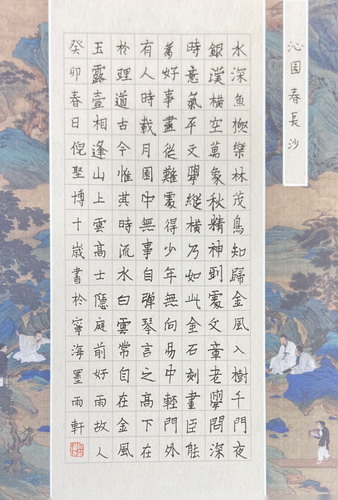 沁園春長沙
水深魚極樂林茂鳥知歸金風入樹千門夜
銀漢橫空萬象秋精神到處文章老學問深
時意氣平文學縱橫乃如此金石刻畫臣能
為好事盡從難處得少年無向易中輕門外
有人時載月園中無事自彈琴言之高下在
於理道古今惟其時流水白雲常自在金風
玉露壹相逢山上雲高士隱庭前好雨故人
癸卯春日倪博十歲書於寧海墨雨軒